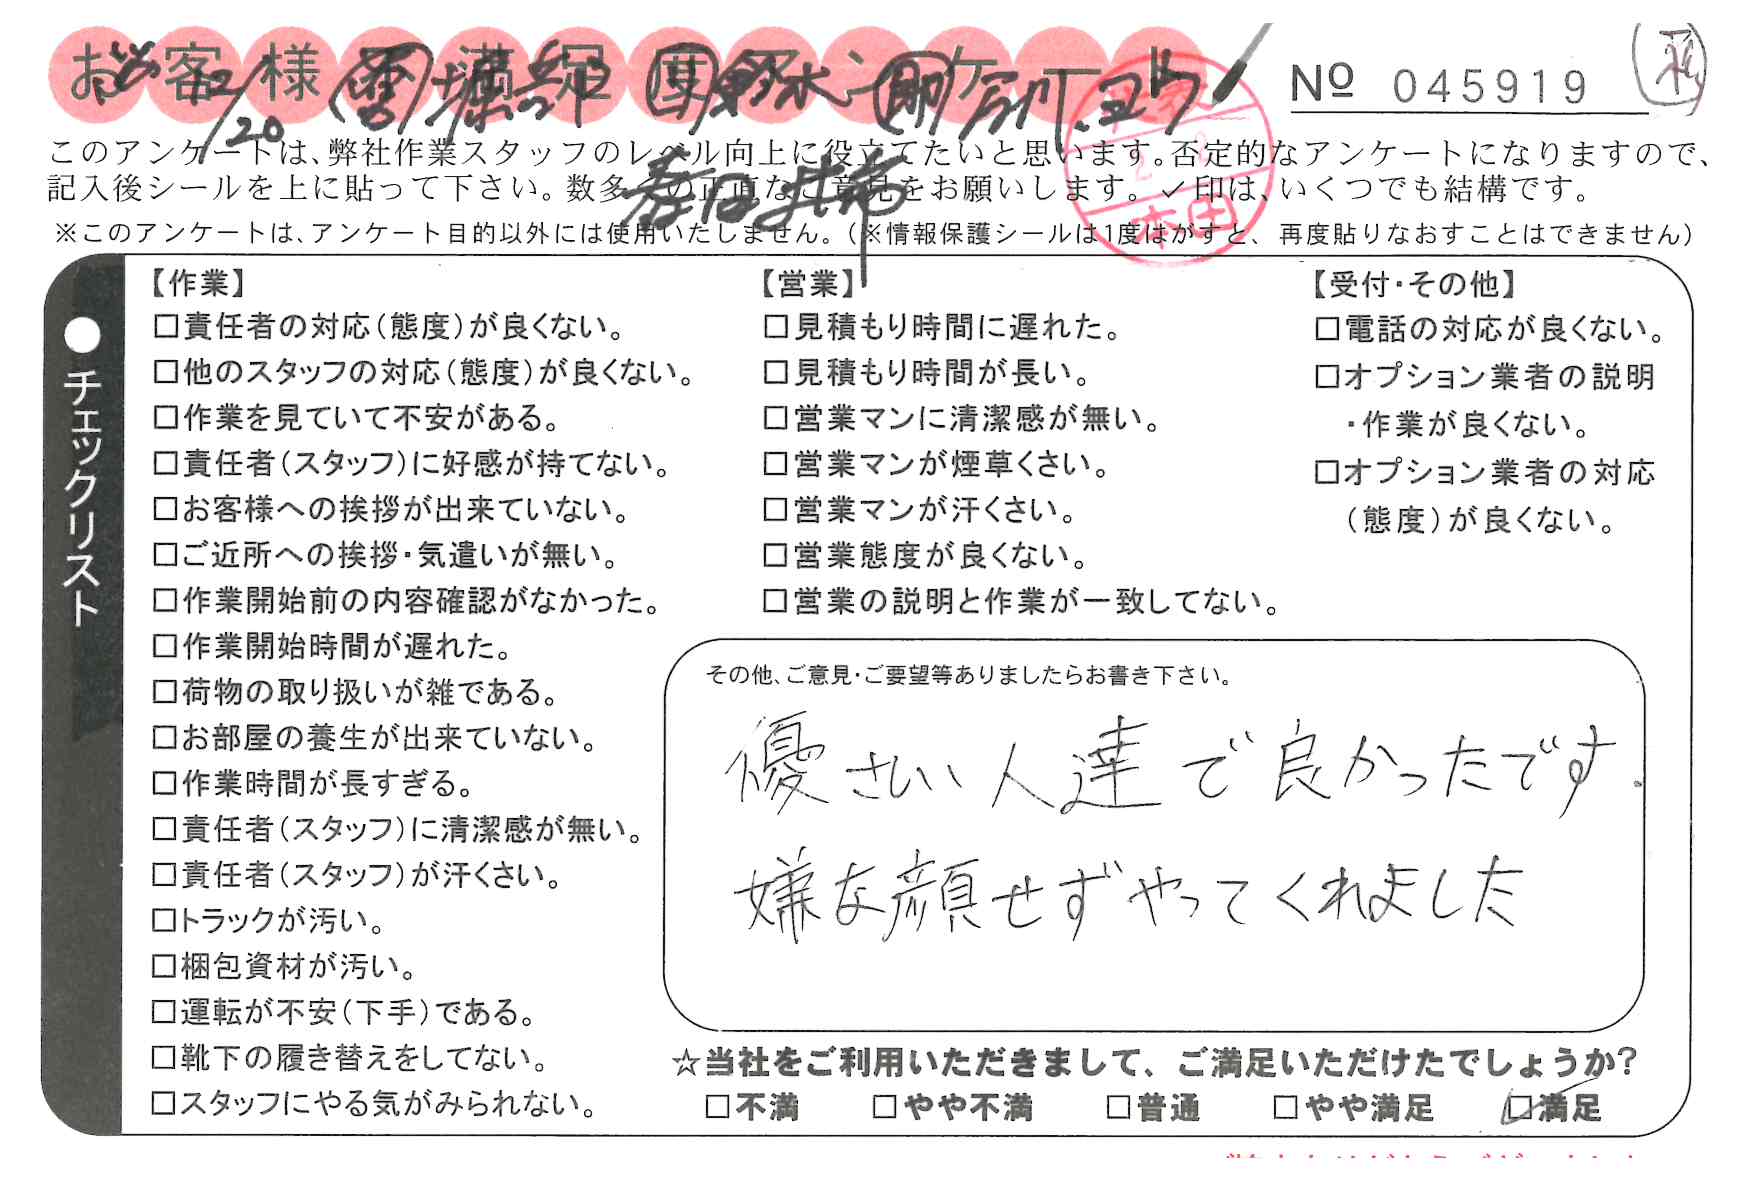 お客様満足度アンケート
12/20
№ 045919
このアンケートは、弊社作業スタッフのレベル向上に役立てたいと思います。否定的なアンケートになりますので、
記入後シールを上に貼って下さい。数多くの正直なご意見をお願いします。✓印は、いくつでも結構です。
※このアンケートは、アンケート目的以外には使用いたしません。(※情報保護シールは1度はがすと、再度貼りなおすことはできません)
本田
●チェックリスト
【作業】
□責任者の対応(態度)が良くない。
□他のスタッフの対応(態度)が良くない。
□作業を見ていて不安がある。
□責任者(スタッフ)に好感が持てない。
□お客様への挨拶が出来ていない。
□ご近所への挨拶・気遣いが無い。
□作業開始前の内容確認がなかった。
□作業開始時間が遅れた。
□荷物の取り扱いが雑である。
□お部屋の養生が出来ていない。
□作業時間が長すぎる。
□責任者(スタッフ)に清潔感が無い。
□責任者(スタッフ)が汗くさい。
□トラックが汚い。
□梱包資材が汚い。
□運転が不安(下手)である。
□靴下の履き替えをしてない。
□スタッフにやる気がみられない。
【営業】
□見積もり時間に遅れた。
□見積もり時間が長い。
□営業マンに清潔感が無い。
□営業マンが煙草くさい。
□営業マンが汗くさい。
□営業態度が良くない。
□営業の説明と作業が一致してない。
【受付・その他】
□電話の対応が良くない。
□オプション業者の説明
・作業が良くない。
□オプション業者の対応
(態度)が良くない。
その他、ご意見・ご要望等ありましたらお書き下さい。
優さしい人達で良かったです.
嫌な顔せずやってくれました
☆当社をご利用いただきまして、ご満足いただけたでしょうか?
□不満 □やや不満 □普通 □やや満足 ☑満足